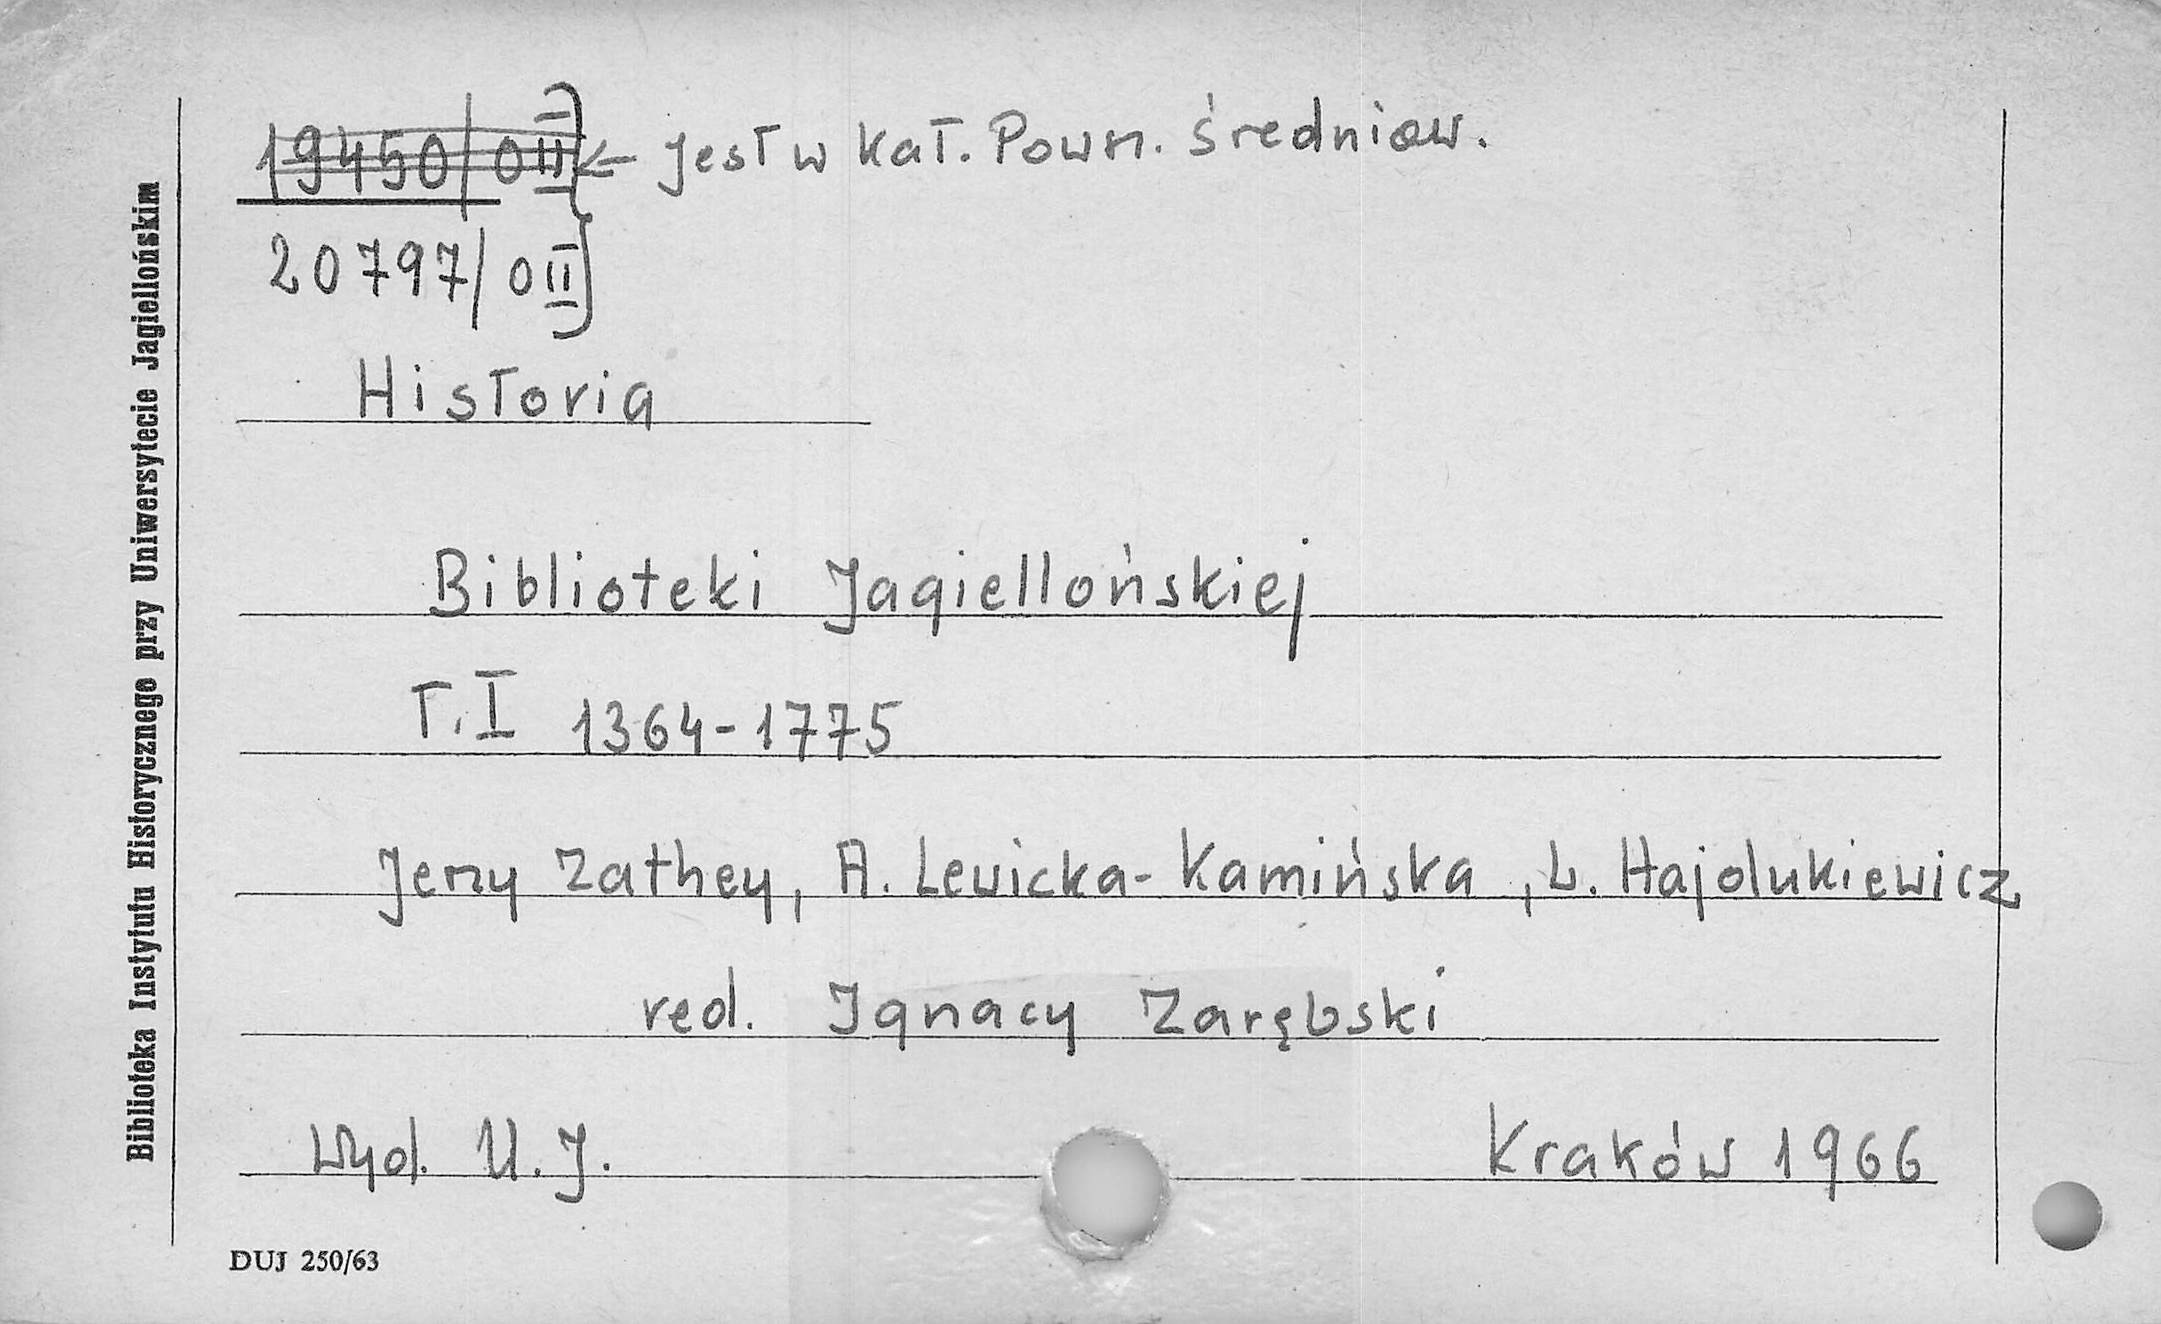 19450/0II ← jest w kat. Powsz. średniow.
20797/0II
Historia
Biblioteki Jagiellońskiej
T. I 1364-1775
Jerzy Zathey, A. Lewicka-Kamińska, L. Hajdukiewicz
red. Ignacy Zarębski
Wyd. U. J. Kraków 1966
DUJ 250/63
Biblioteka Instytutu Historycznego przy Uniwersytecie Jagiellońskim